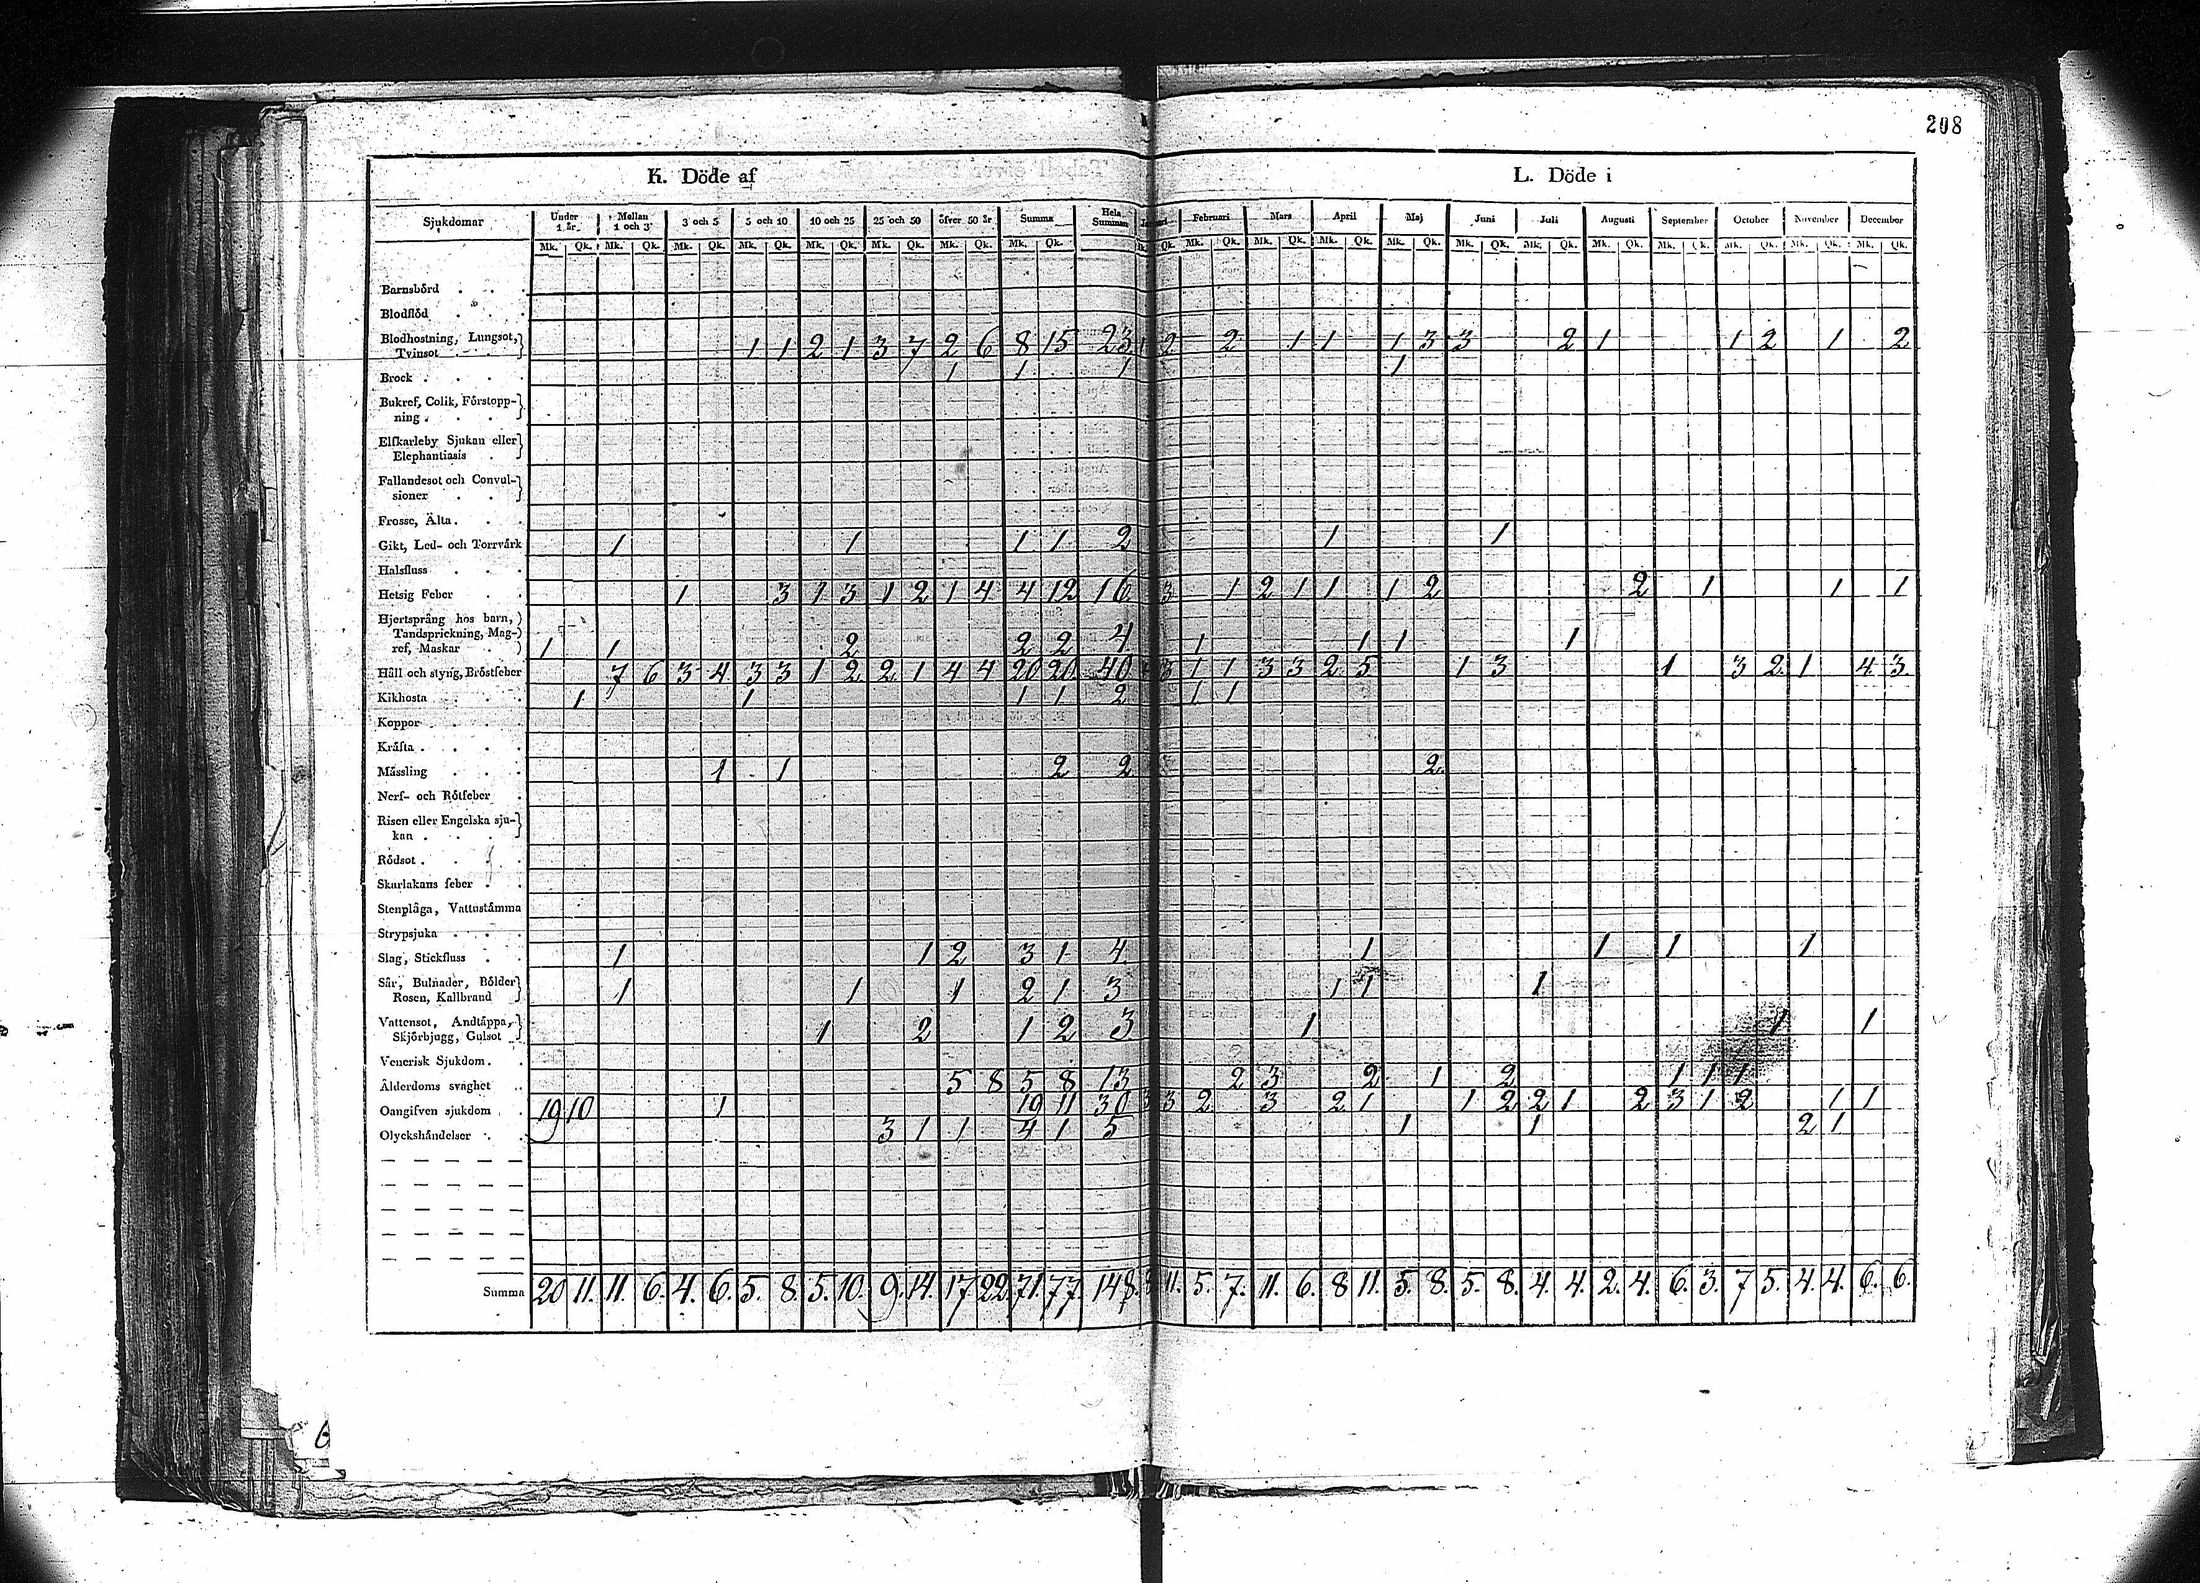 208
K. Döde af L. Döde i
Sjukdomar Under 1 år Mellan 1 och 3 3 och 5 5 och 10 10 och 25 25 och 50 öfver 50 år Summa Hela Summan Februari Mars April Maj Juni Juli Augusti September October November December
Mk. Qk. Mk. Qk. Mk. Qk. Mk. Qk. Mk. Qk. Mk. Qk. Mk. Qk. Mk. Qk. Mk. Qk. Mk. Qk. Mk. Qk. Mk. Qk. Mk. Qk. Mk. Qk. Mk. Qk. Mk. Qk. Mk. Qk. Mk. Qk. Mk. Qk. Mk. Qk.
Barnsbörd . . .
Blodflöd . . .
Blodhostning, Lungsot,
Tvinsot 1 1 2 1 3 7 2 6 8 15 23 1 2 2 1 1 1 3 3 2 1 1 2 1 2
Brock . . . . 1 1 1 1
Bukref, Colik, Förstopp-
ning . . . .
Elfkarleby Sjukan eller
Elephantiasis .
Fallandesot och Convul-
sioner . .
Frosse, Älta . . .
Gikt, Led- och Torrvärk 1 1 1 1 2 1 1
Halsfluss . . .
Hetsig Feber . . 1 3 1 3 1 2 1 4 4 12 16 3 1 2 1 1 1 2 2 1 1 1
Hjertsprång hos barn,
Tandsprickning, Mag-
ref, Maskar . 1 1 2 2 2 4 1 1 1 1
Håll och styng, Bröstfeber 7 6 3 4 3 3 1 2 2 1 4 4 20 20 40 3 1 1 3 3 2 5 1 3 1 3 2 1 4 3
Kikhosta . . . 1 1 1 1 2 1 1
Koppor . . . .
Kräfta . . . .
Mässling . . . 1 1 2 2 2
Nerf- och Rötfeber .
Risen eller Engelska sju-
kan . . . .
Rödsot . . .
Skarlakans feber . .
Stenplåga, Vattustämma
Strypsjuka . . .
Slag, Stickfluss . . 1 1 2 3 1 4 1 1 1 1
Sår, Bulnader, Bölder
Rosen, Kallbrand 1 1 1 2 1 3 1 1 1
Vattensot, Andtäppa,
Skjörbjugg, Gulsot 1 2 1 2 3 1 1 1
Venerisk Sjukdom . .
Ålderdoms svaghet . 5 8 5 8 13 2 3 2 1 2 1 1 1
Oangifven sjukdom . 19 10 1 19 11 30 3 3 2 3 2 1 1 2 2 1 2 3 1 2 1 1
Olyckshändelser . . 3 1 1 4 1 5 1 1 2 1
Summa 20 11. 11. 6. 4. 6. 5. 8. 5. 10. 9. 14. 17 22. 71. 77. 148. 11. 5. 7. 11. 6. 8 11. 5. 8. 5. 8. 4. 4. 2. 4. 6. 3. 7 5. 4. 4. 6. 6.